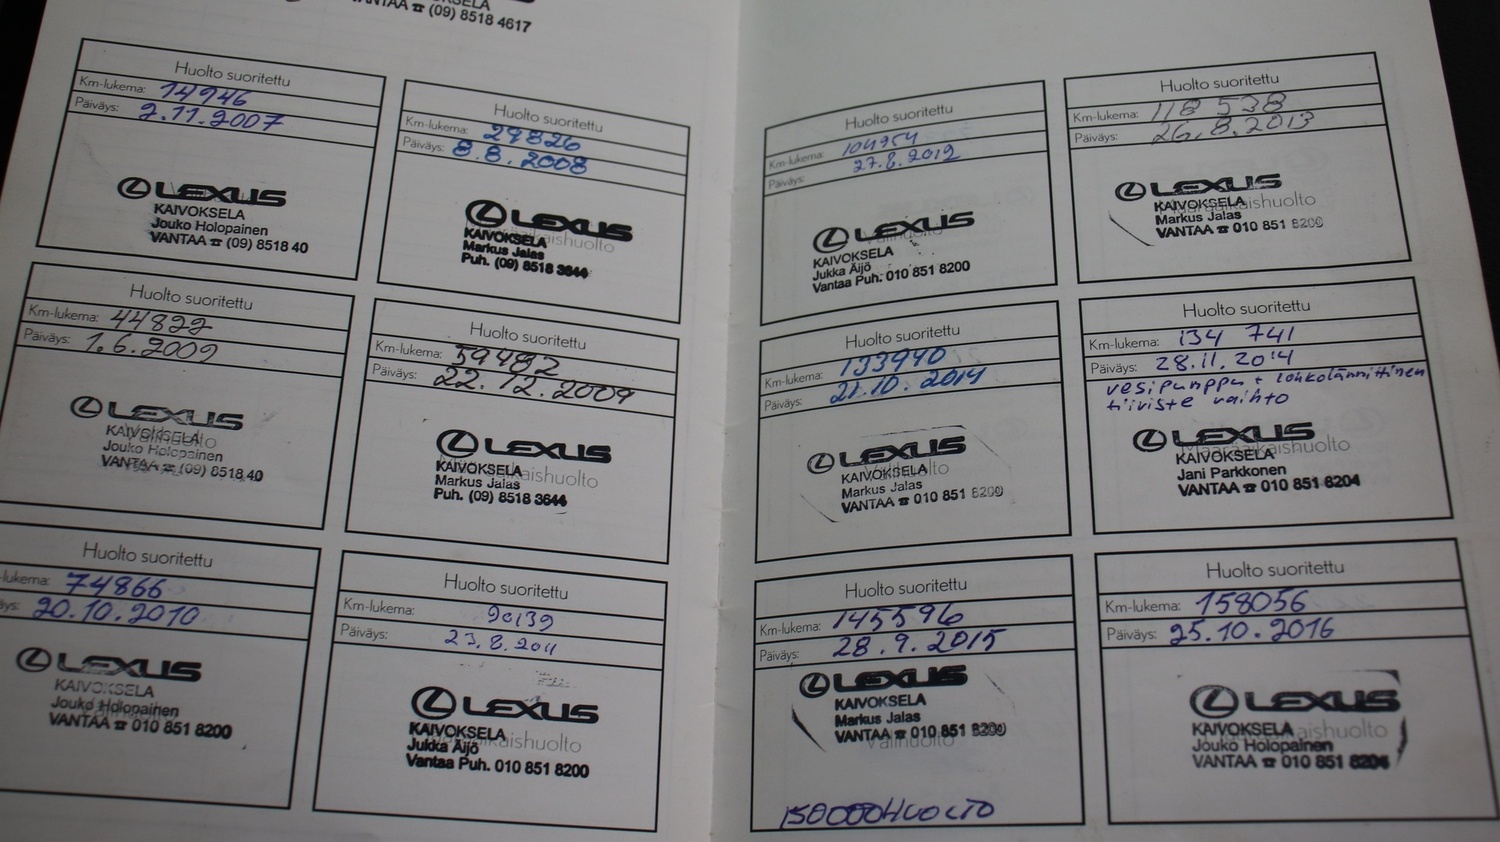 VANTAA ☎ (09) 8518 4617
Huolto suoritettu
Km-lukema: 14946
Päiväys: 2.11.2007
LEXUS
KAIVOKSELA
Jouko Holopainen
VANTAA ☎ (09) 8518 40
Huolto suoritettu
Km-lukema: 29826
Päiväys: 8.8.2008
LEXUS
KAIVOKSELA
Markus Jalas
Puh. (09) 8518 3644
Huolto suoritettu
Km-lukema: 44822
Päiväys: 1.6.2009
LEXUS
KAIVOKSELA
Jouko Holopainen
VANTAA ☎ (09) 8518 40
Huolto suoritettu
Km-lukema: 59482
Päiväys: 22.12.2009
LEXUS
KAIVOKSELA
Markus Jalas
Puh. (09) 8518 3644
Huolto suoritettu
lukema: 74866
20.10.2010
LEXUS
KAIVOKSELA
Jouko Holopainen
VANTAA ☎ 010 851 8200
Huolto suoritettu
Km-lukema: 90139
Päiväys: 23.8.2011
LEXUS
KAIVOKSELA
Jukka Äijö
Vantaa Puh. 010 851 8200
Huolto suoritettu
Km-lukema: 104954
Päiväys: 27.8.2012
LEXUS
KAIVOKSELA
Jukka Äijö
Vantaa Puh. 010 851 8200
Huolto suoritettu
Km-lukema: 118 538
Päiväys: 26.8.2013
LEXUS
KAIVOKSELA
Markus Jalas
VANTAA ☎ 010 851 8200
Huolto suoritettu
Km-lukema: 133940
Päiväys: 21.10.2014
LEXUS
KAIVOKSELA
Markus Jalas
VANTAA ☎ 010 851 8200
Huolto suoritettu
Km-lukema: 134 741
Päiväys: 28.11.2014
vesipumppu + lohkolämmittimen
tiiviste vaihto
LEXUS
Määräaikaishuolto
KAIVOKSELA
Jani Parkkonen
VANTAA ☎ 010 851 8204
Huolto suoritettu
Km-lukema: 145596
Päiväys: 28.9.2015
LEXUS
KAIVOKSELA
Markus Jalas
VANTAA ☎ 010 851 8200
Välihuolto
150000HUOLTO
Huolto suoritettu
Km-lukema: 158056
Päiväys: 25.10.2016
LEXUS
KAIVOKSELA
Jouko Holopainen
VANTAA ☎ 010 851 8204